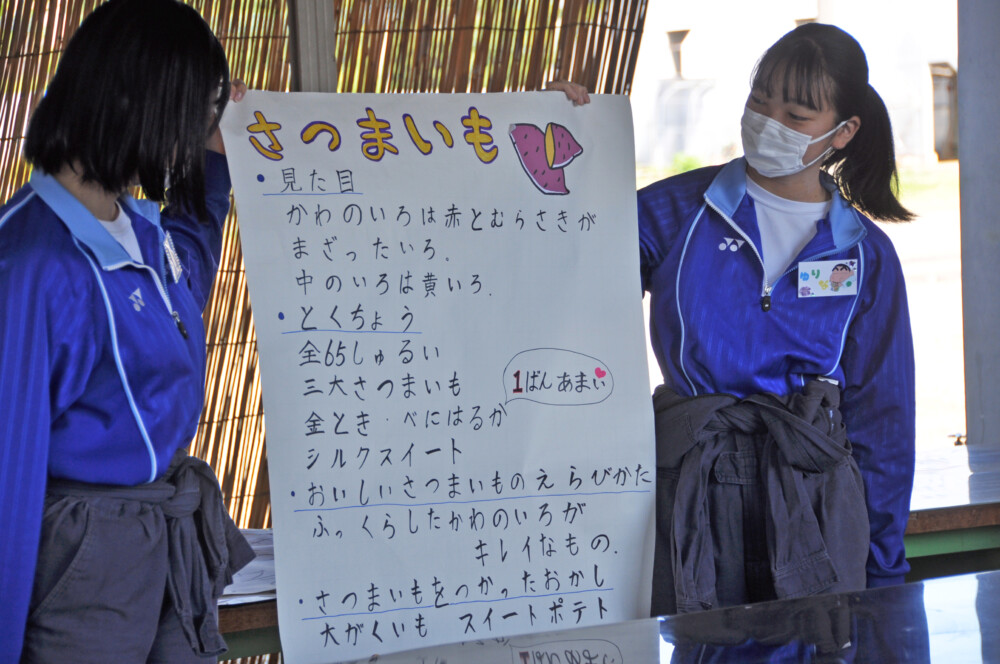 さつまいも
・見た目
かわのいろは赤とむらさきが
まざったいろ.
中のいろは黄いろ.
・とくちょう
全65しゅるい
三大さつまいも
1ばんあまい
金とき・べにはるか
シルクスイート
・おいしいさつまいものえらびかた
ふっくらしたかわのいろが
キレイなもの.
・さつまいもをつかったおかし
大がくいも スイートポテト